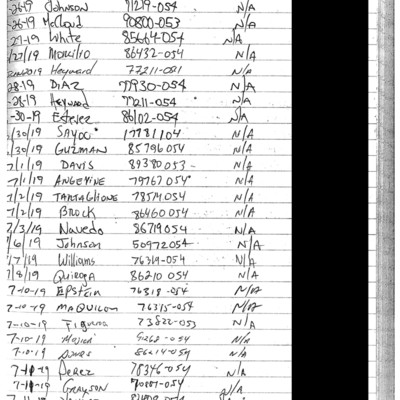 -26-19 Johnson 71219-054 N/A
-26-19 McCloud 90800-053 N/A
-27-19 White 85664-054 N/A
/27/19 Morcilio 86432-054 N/A
2019 Heyward 77211-081 N/A
-28-19 DIAZ 77930-054 N/A
-28-19 Heyward 77211-054 N/A
-30-19 Estevez 86102-054 N/A
/30/19 SAYOC 17781104 N/A
/30/19 GUZMAN 85796054 N/A
7/1/19 DAVIS 89380053 N/A
7/1/19 ANGEVINE 79767054 N/A
7/2/19 TARTAGLIONE 78514054 N/A
7/2/19 Brock 86460054 N/A
7/3/19 Navedo 86719054 N/A
/6/19 Johnson 50972054 N/A
/7/19 Williams 76369-054 N/A
/8/19 Quiroga 86210 054 N/A
7-10-19 EPStein 76318-054 N/A
7-10-19 MAQUILON 76315-054 N/A
7-10-19 Figueroa 73822-053 N/A
7-10-19 054 N/A
7-10-19 86214-054 N/A
7-11-19 Perez 78346-054 N/A
7-11-19 GRAYSON 054 N/A